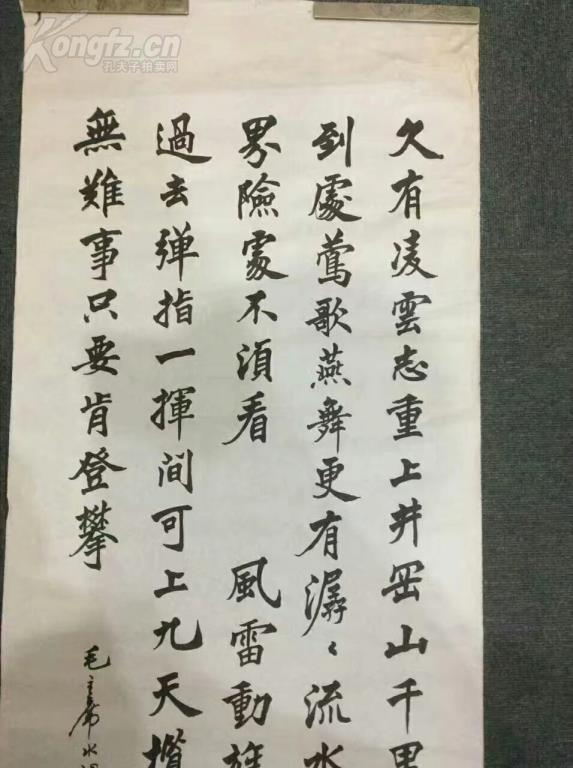 Kongfz.cn
孔夫子拍卖网
久有凌雲志重上井岡山千里
到處莺歌燕舞更有潺〻流水
界險處不須看 風雷動旌
過去弹指一揮间可上九天攬
無難事只要肯登攀
毛主席水调